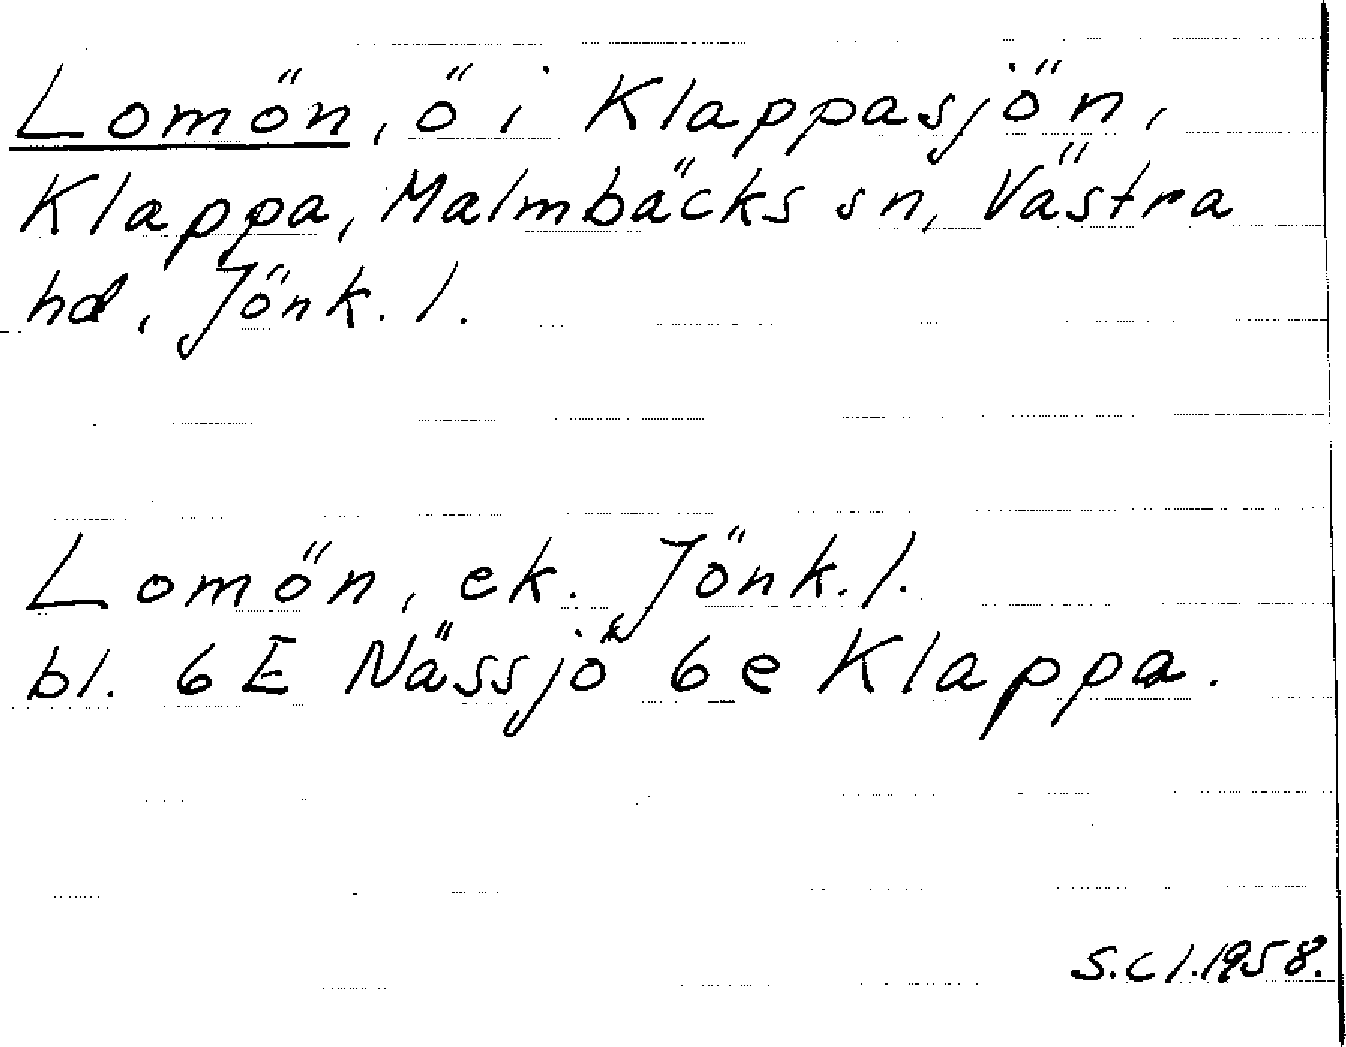 Lomön, ö i Klappasjön,
Klappa, Malmbäcks sn, Västra
hd, Jönk. l.
Lomön, ek. Jönk. l.
bl. 6E Nässjö 6e Klappa.
S.Cl. 1958.